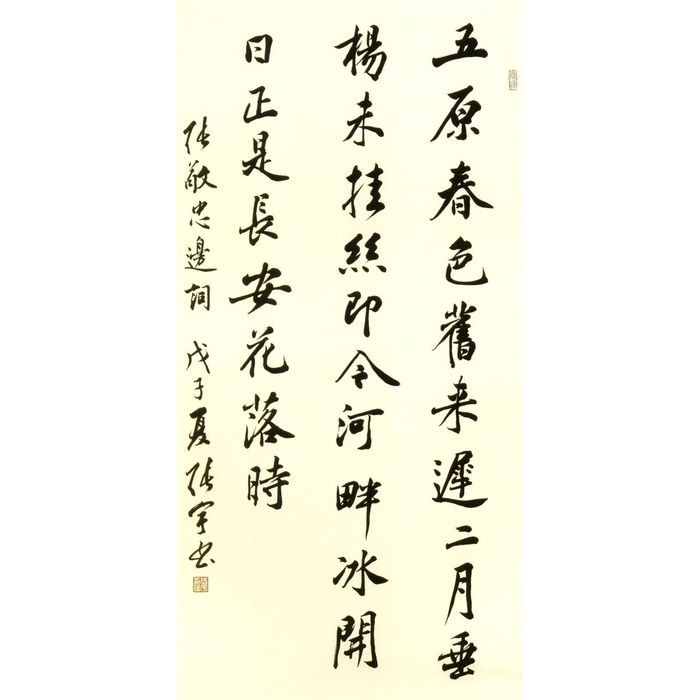 五原春色舊来遲二月垂
楊未挂絲即今河畔冰開
日正是長安花落時
张敬忠邊詞 戊子夏张宇书